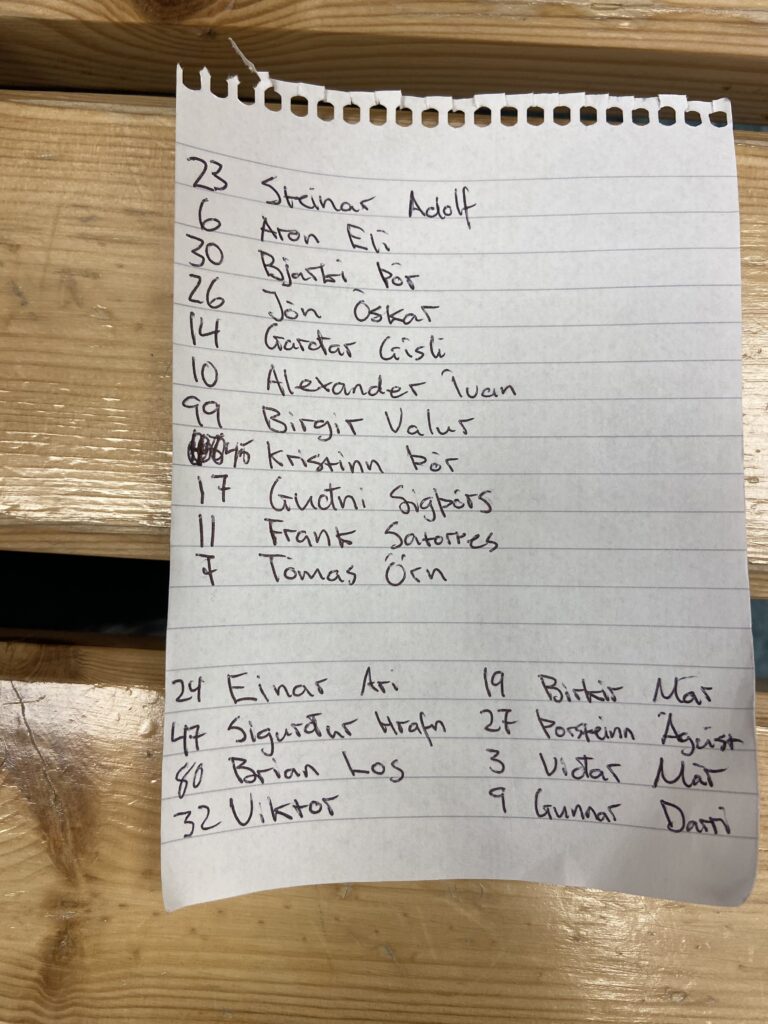 23 Steinar Adolf
6 Aron Eli
30 Bjarki Þór
26 Jón Óskar
14 Garðar Gísli
10 Alexander Ívan
99 Birgir Valur
45 Kristinn Þór
17 Guðni Sigþórs
11 Frank Satorres
7 Tómas Örn
24 Einar Ari 19 Birkir Már
47 Sigurður Hrafn 27 Þorsteinn Ágúst
80 Brian Los 3 Víðar Már
32 Viktor 9 Gunnar Darri